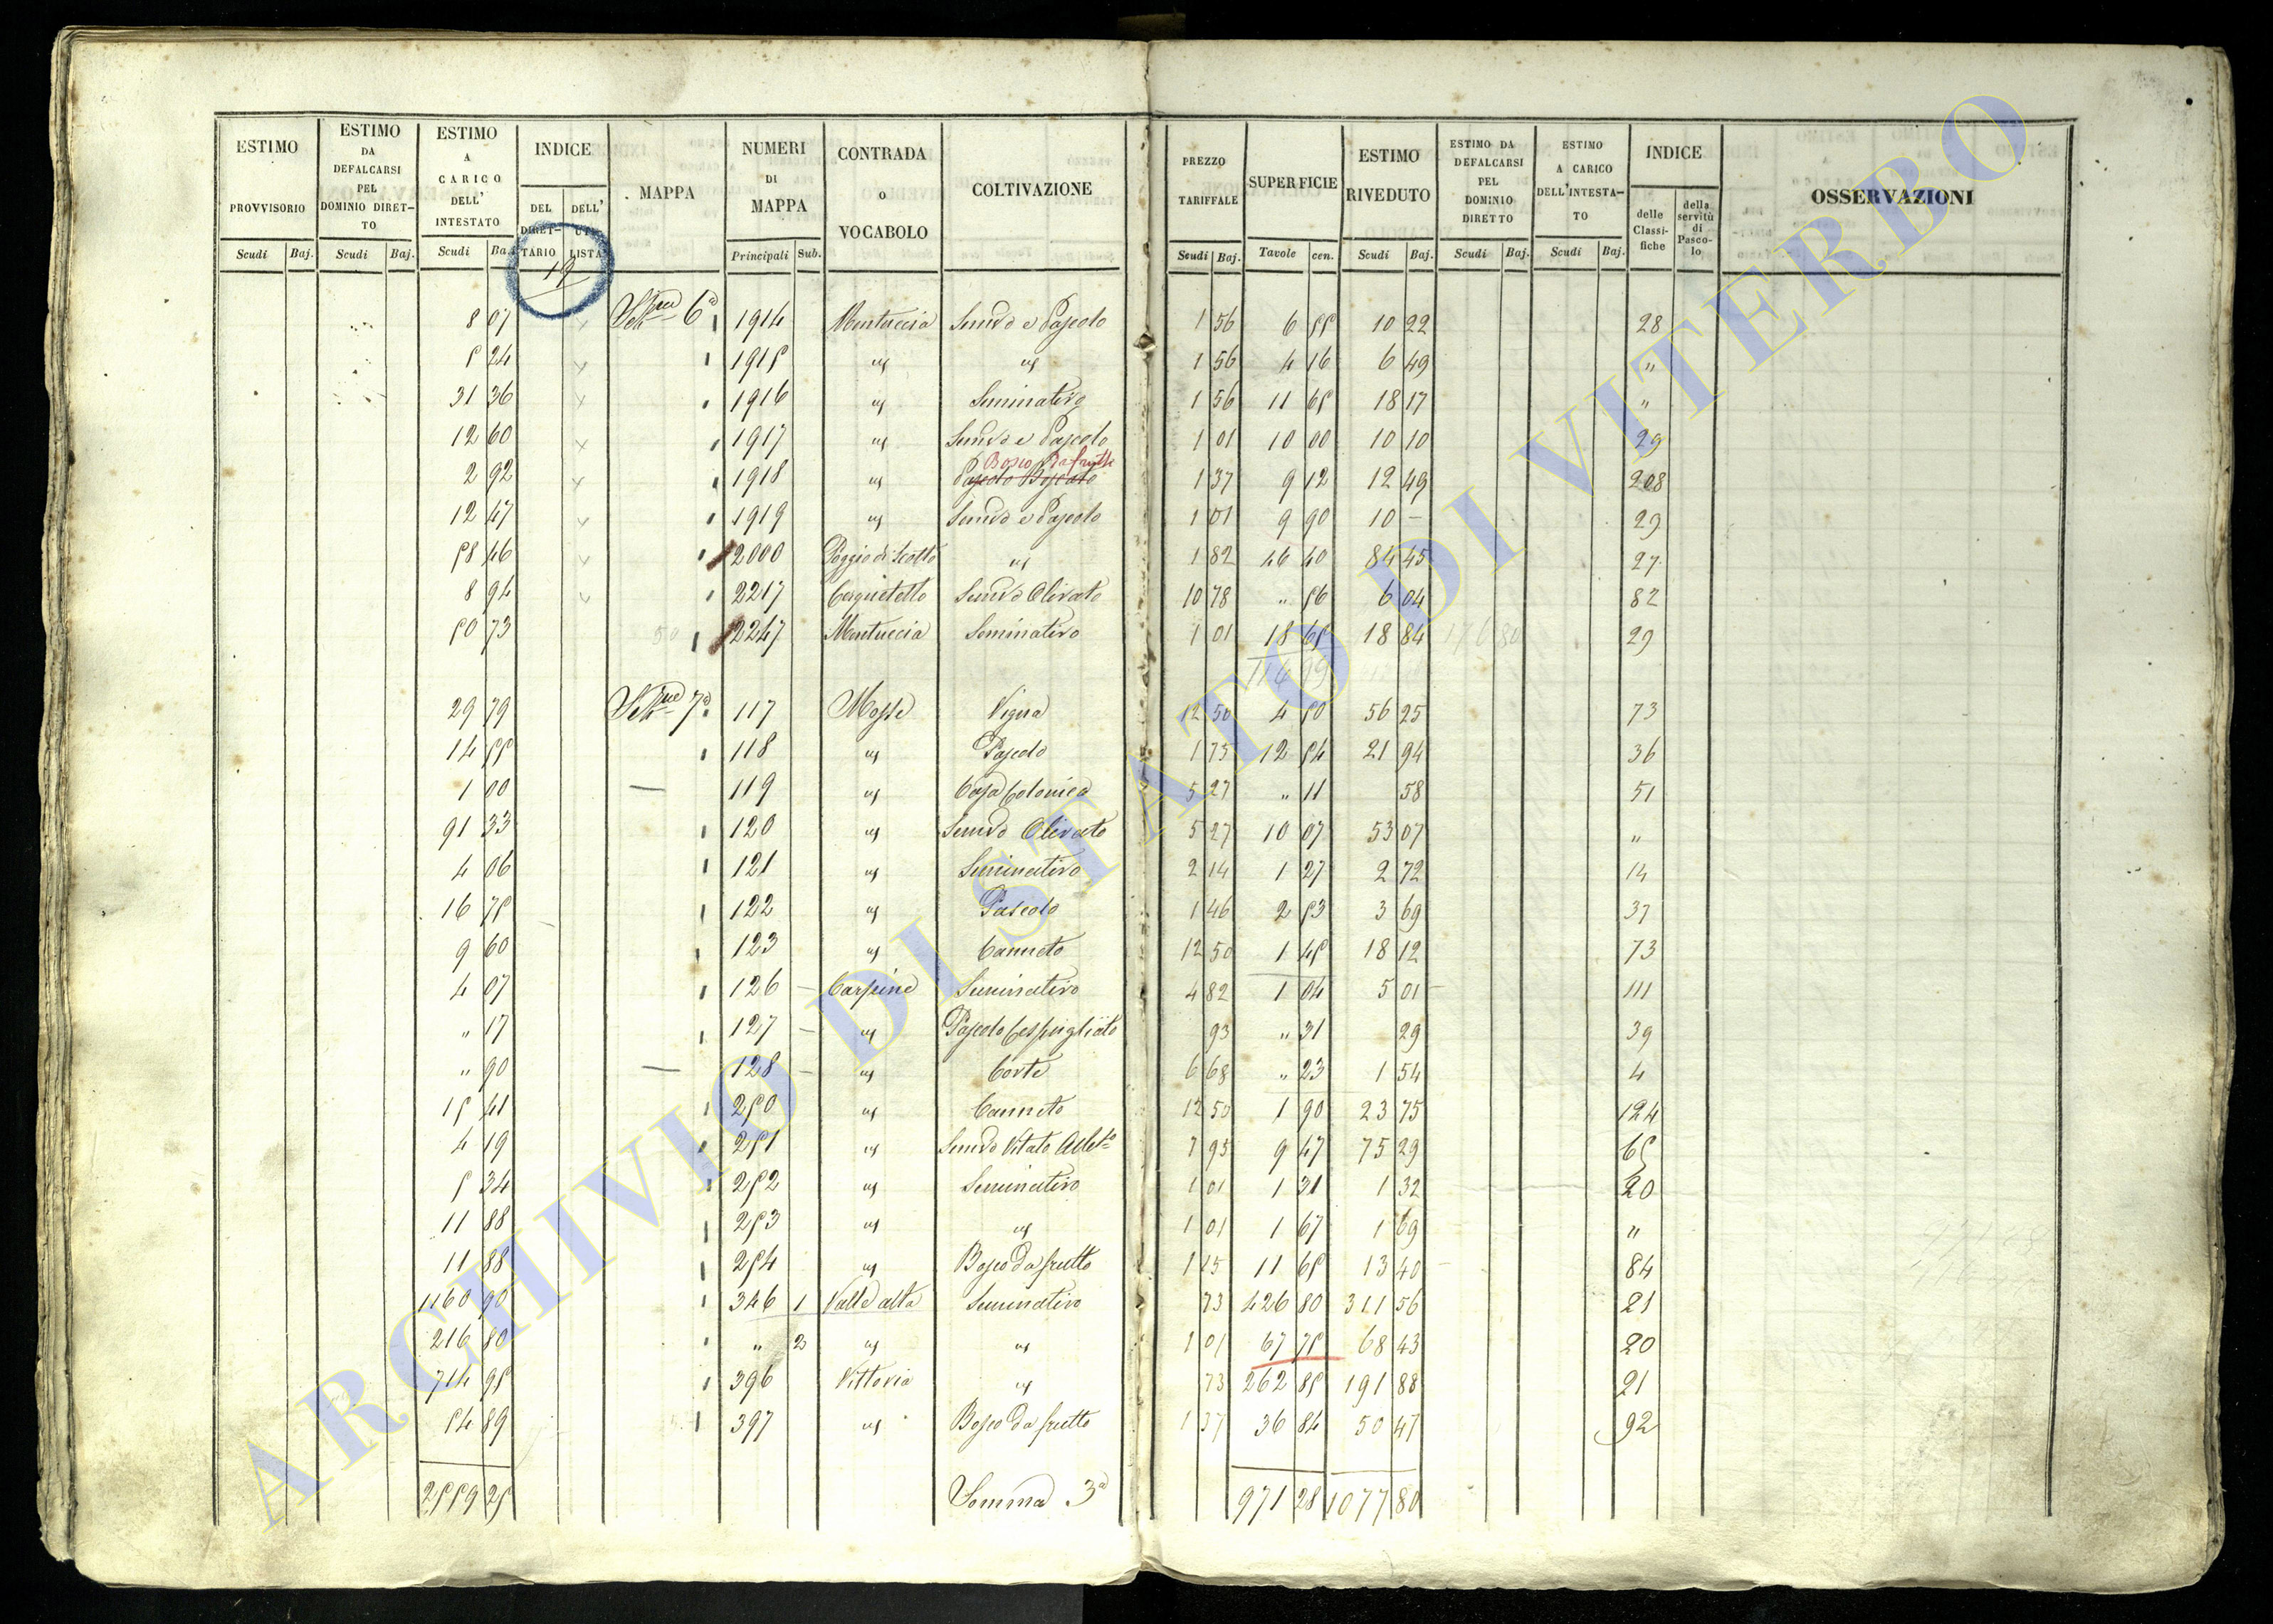 ESTIMO PROVVISORIO | ESTIMO DA DEFALCARSI PEL DOMINIO DIRET–TO | ESTIMO A CARICO DELL' INTESTATO | INDICE | MAPPA | NUMERI DI MAPPA | CONTRADA o VOCABOLO | COLTIVAZIONE | PREZZO TARIFFALE | SUPERFICIE | ESTIMO RIVEDUTO | ESTIMO DA DEFALCARSI PEL DOMINIO DIRETTO | ESTIMO A CARICO DELL'INTESTA–TO | INDICE | OSSERVAZIONI
DEL DIRET–TARIO | DELL' LISTA | delle Classi-fiche | della servitù di Pasco-lo
Scudi Baj. | Scudi Baj. | Scudi Ba. | Principali Sub. | Scudi Baj. | Tavole cen. | Scudi Baj. | Scudi Baj. | Scudi Baj.
19
8 07 | 6ª | 1914 | Montuccia | Semvo e Pascolo | 1 56 | 6 55 | 10 22 | 28
5 24 | 1915 | " | " | 1 56 | 4 16 | 6 49 | "
31 36 | 1916 | " | Seminativo | 1 56 | 11 65 | 18 17 | "
12 60 | 1917 | " | Semvo e Pascolo | 1 01 | 10 00 | 10 10 | 29
Bosco Da frutto
2 92 | 1918 | " | Pascolo Boscato | 1 37 | 9 12 | 12 49 | 208
12 47 | 1919 | " | Semvo e Pascolo | 1 01 | 9 90 | 10 – | 29
58 46 | 2000 | Poggio di | " | 1 82 | 46 40 | 84 45 | 27
8 94 | 2217 | Cerquetello | Semvo Olivato | 10 78 | " 56 | 6 04 | 82
50 73 | 2247 | Montuccia | Seminativo | 1 01 | 18 65 | 18 84 | 176 80 | 29
114 99
29 79 | 7ª | 117 | Mosse | Vigna | 12 50 | 4 50 | 56 25 | 73
14 55 | 118 | " | Pascolo | 1 75 | 12 54 | 21 94 | 36
1 00 | — | 119 | " | Casa Colonica | 5 27 | " 11 | 58 | 51
91 33 | 120 | " | Semvo Olivato | 5 27 | 10 07 | 53 07 | "
4 06 | 121 | " | Seminativo | 2 14 | 1 27 | 2 72 | 14
16 75 | 122 | " | Pascolo | 1 46 | 2 53 | 3 69 | 37
9 60 | 123 | " | Canneto | 12 50 | 1 45 | 18 12 | 73
4 07 | 126 | Carpine | Seminativo | 4 82 | 1 04 | 5 01 | 111
" 17 | 127 | " | Pascolo Cespugliato | 93 | " 31 | 29 | 39
" 90 | — | 128 | " | Corte | 6 68 | " 23 | 1 54 | 4
15 41 | 250 | " | Canneto | 12 50 | 1 90 | 23 75 | 124
4 19 | 251 | " | Semvo Vitato | 7 95 | 9 47 | 75 29 | 65
5 34 | 252 | " | Seminativo | 1 01 | 1 31 | 1 32 | 20
11 88 | 253 | " | " | 1 01 | 1 67 | 1 69 | "
11 88 | 254 | " | Bosco Da frutto | 1 15 | 11 65 | 13 40 | 84
1160 90 | 346 1 | Valle alta | Seminativo | 73 | 426 80 | 311 56 | 21
216 80 | " 2 | " | " | 1 01 | 67 75 | 68 43 | 20
714 95 | 396 | Vittoria | " | 73 | 262 85 | 191 88 | 21
54 89 | 397 | " | Bosco Da frutto | 1 37 | 36 84 | 50 47 | 92
2559 25 | Somma 3ª | 971 28 | 1077 80
ARCHIVIO DI STATO DI VITERBO